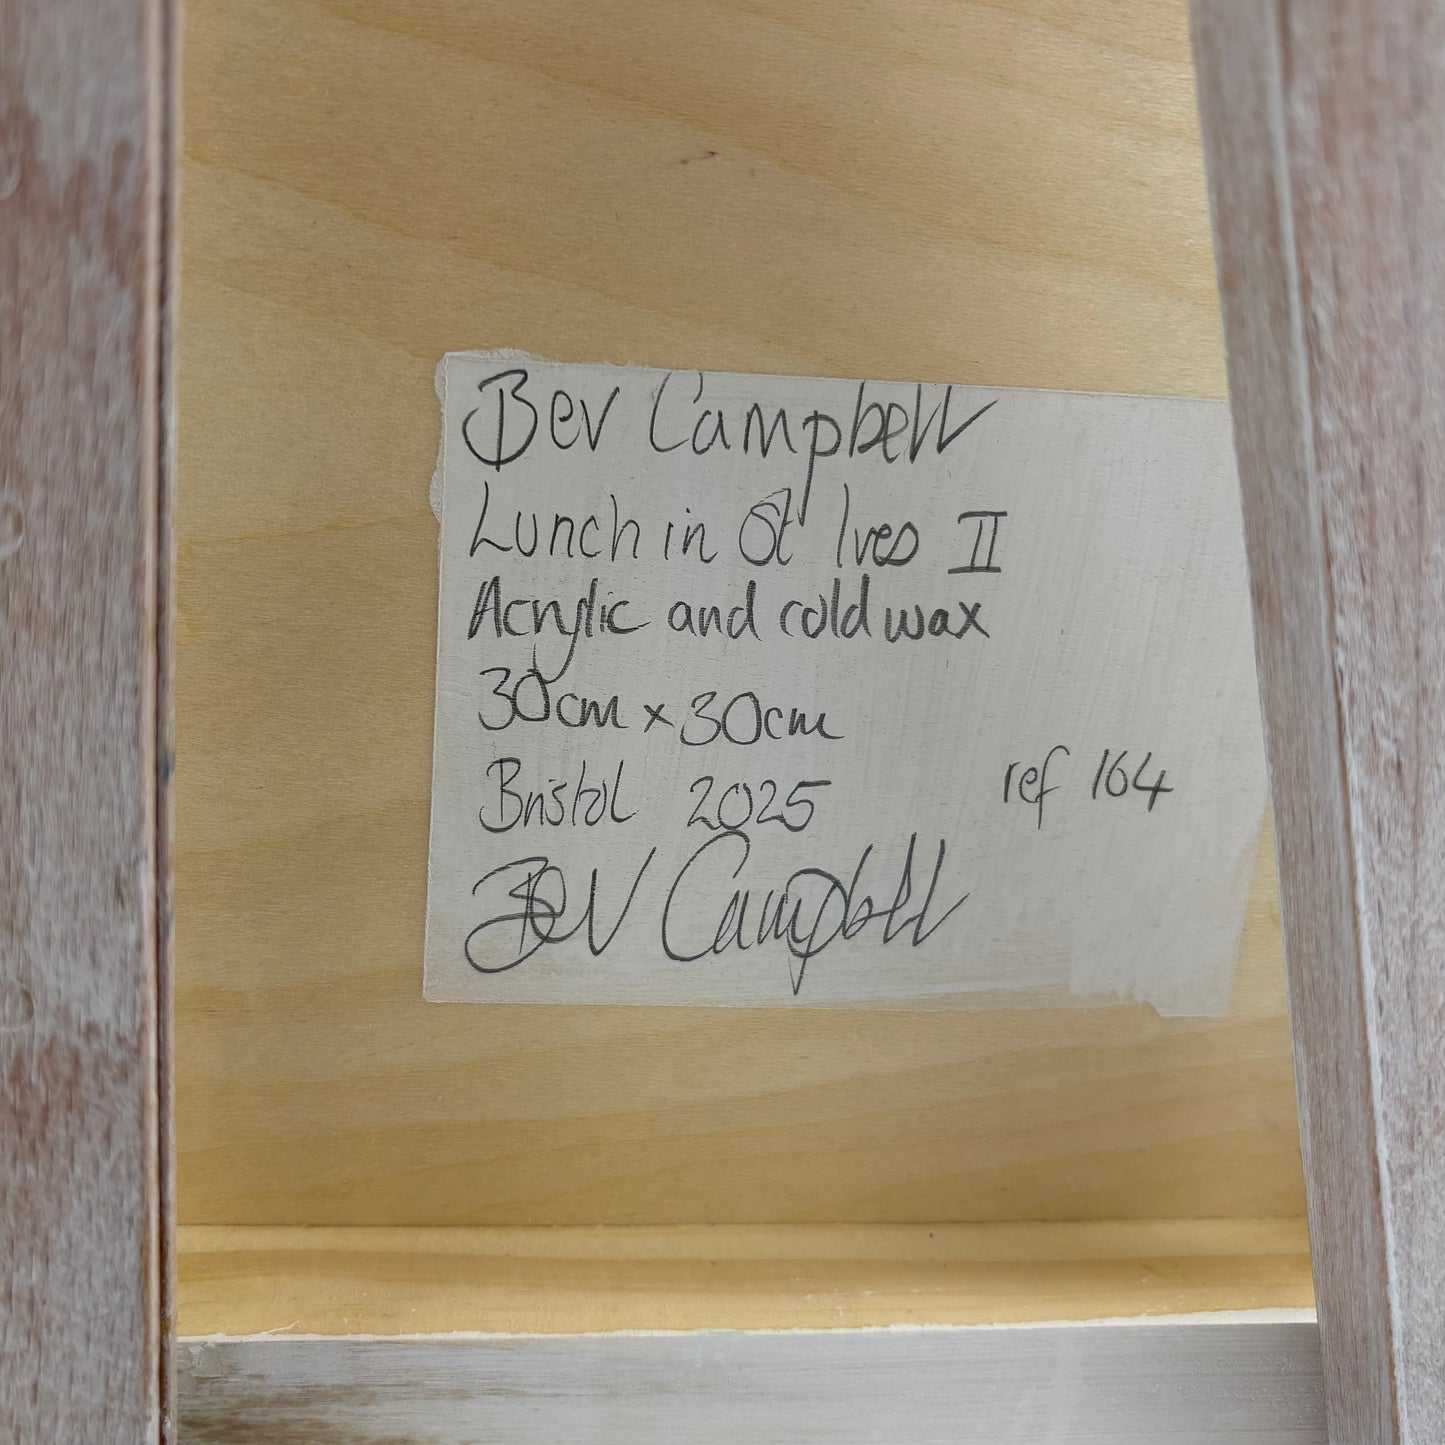 Bev Campbell
Lunch in St Ives II
Acrylic and cold wax
30cm x 30cm
Bristol 2025 ref 164
Bev Campbell